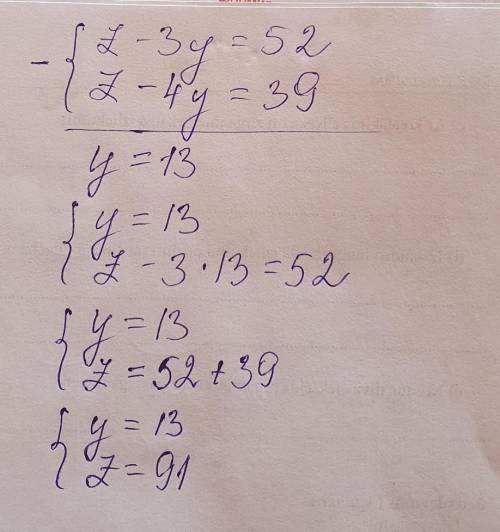 - { z - 3y = 52
z - 4y = 39
y = 13
{ y = 13
z - 3 · 13 = 52
{ y = 13
z = 52 + 39
{ y = 13
z = 91